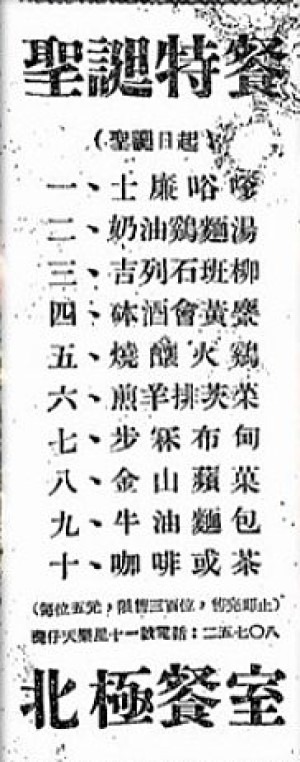 聖誕特餐
(聖誕日起)
一、士廉咯嗲
二、奶油鷄麵湯
三、吉列石班柳
四、砵酒會黃
五、燒釀火鷄
六、煎羊排茨菜
七、步冧布甸
八、金山蘋菓
九、牛油麵包
十、咖啡或茶
(每位五元，限售三百位，售完即止)
灣仔天樂里十一號電話：二五七〇八
北極餐室